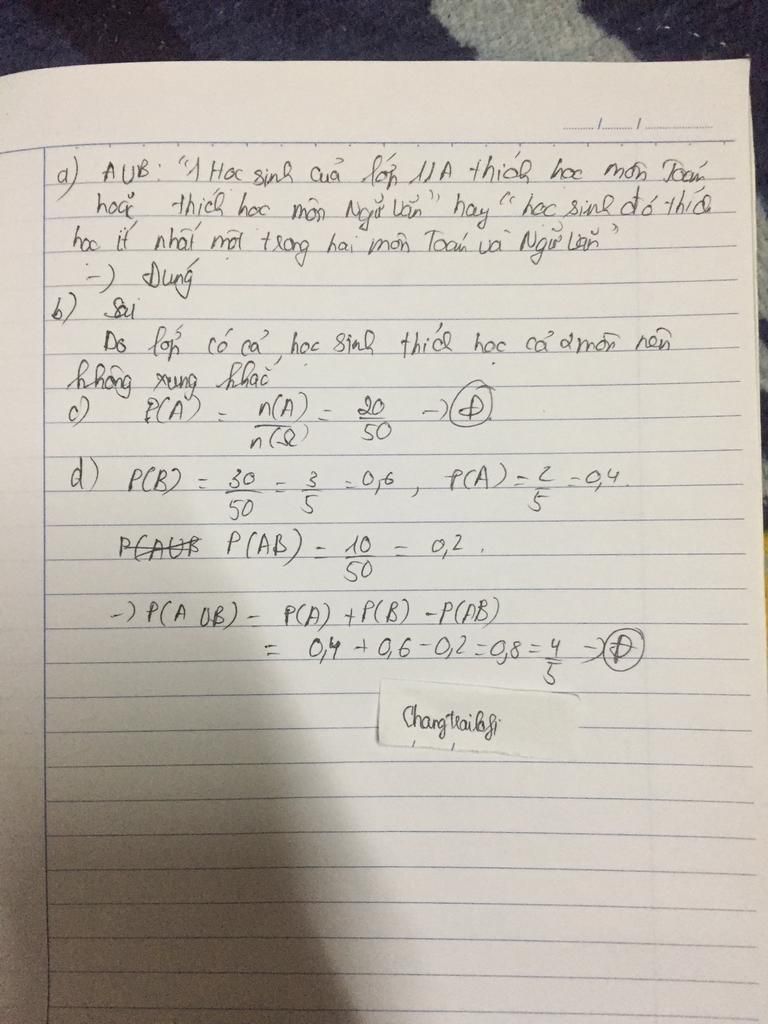 a) AUB: "1 Học sinh của lớp 11A thích học môn Toán
hoặc thích học môn Ngữ Văn" hay "học sinh đó thích
học ít nhất một trong hai môn Toán và Ngữ Văn"
-) Đúng
b) Sai
Do lớp có cả học sinh thích học cả 2 môn nên
không xung khắc
c) P(A) = n(A)/n(Ω) = 20/50 -) Đ
d) P(B) = 30/50 = 3/5 = 0,6, P(A) = 2/5 = 0,4.
P(AUB P(AB) = 10/50 = 0,2.
-) P(A UB) = P(A) + P(B) - P(AB)
= 0,4 + 0,6 - 0,2 = 0,8 = 4/5 -) Đ